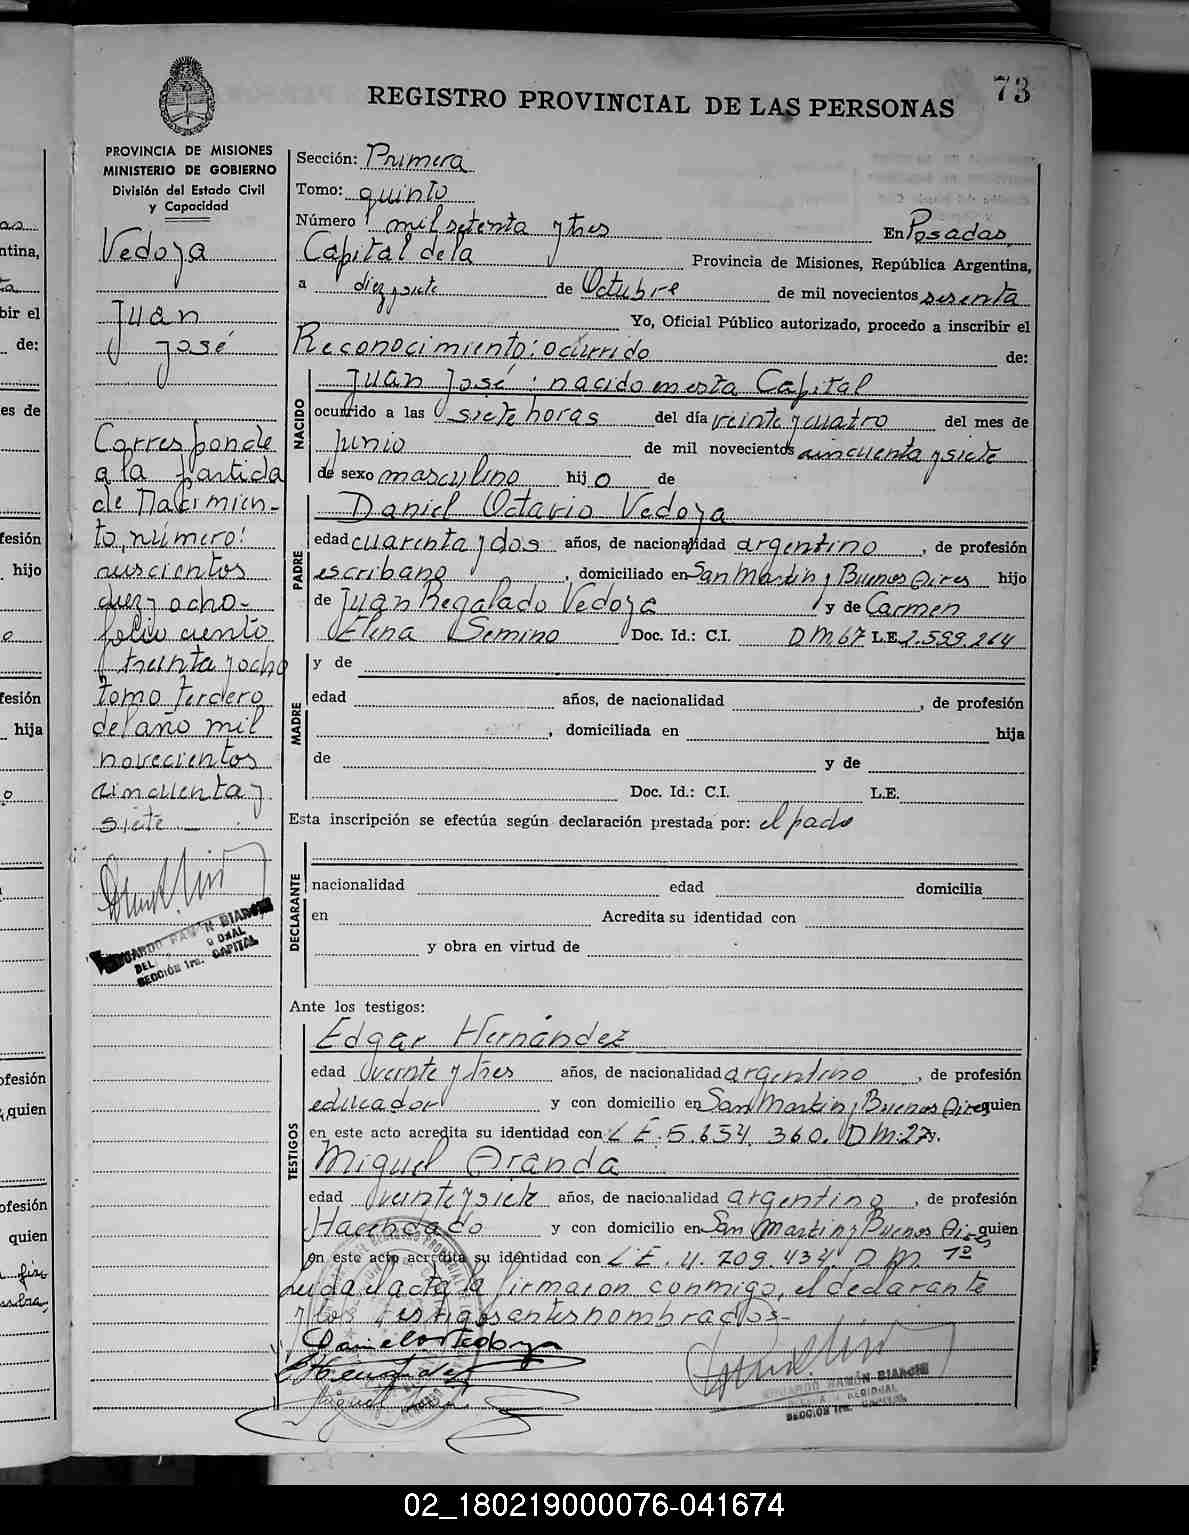 73
REGISTRO PROVINCIAL DE LAS PERSONAS
PROVINCIA DE MISIONES
MINISTERIO DE GOBIERNO
División del Estado Civil
y Capacidad
Vedoya
Juan
José
Corresponde
a la partida
de Nacimien-
to, número:
diez y ocho-
folio ciento
treinta y ocho
tomo tercero
del año mil
novecientos
cincuenta y
siete
EDUARDO RAMON BIANCHI
SECCIÓN 1ra. CAPITAL
Sección: Primera
Tomo: quinto
Número mil setenta y tres En Posadas,
Capital de la Provincia de Misiones, República Argentina,
a diez y siete de Octubre de mil novecientos sesenta
Yo, Oficial Público autorizado, procedo a inscribir el
Reconocimiento: ocurrido de:
NACIDO
Juan José: nacido en esta Capital
ocurrido a las siete horas del día veinte y cuatro del mes de
Junio de mil novecientos cincuenta y siete
de sexo masculino hijo de
PADRE
Daniel Octavio Vedoya
edad cuarenta y dos años, de nacionalidad argentino, de profesión
escribano, domiciliado en San Martin, Buenos Aires hijo
de Juan Regalado Vedoya y de Carmen
Elena Semino Doc. Id.: C.I. D M 67 L.E. 2.599.264
MADRE
y de
edad años, de nacionalidad, de profesión
, domiciliada en hija
de y de
Doc. Id.: C.I. L.E.
Esta inscripción se efectúa según declaración prestada por: el padre
DECLARANTE
nacionalidad edad domicilia
en Acredita su identidad con
y obra en virtud de
Ante los testigos:
TESTIGOS
Edgar Hernández
edad veinte y tres años, de nacionalidad argentino, de profesión
educador y con domicilio en San Martin, Buenos Aires quien
en este acto acredita su identidad con L E. 5.654.360. D M. 27 y.
Miguel Aranda
edad veinte y siete años, de nacionalidad argentino, de profesión
Hacendado y con domicilio en San Martin, Buenos Aires quien
en este acto acredita su identidad con L E. 4.709.434. D M. 1º
Leida el acta la firmaron conmigo, el declarante
y los testigos antes nombrados-
EDUARDO RAMÓN BIANCHI
SECCIÓN 1ra. CAPITAL
02_180219000076-041674